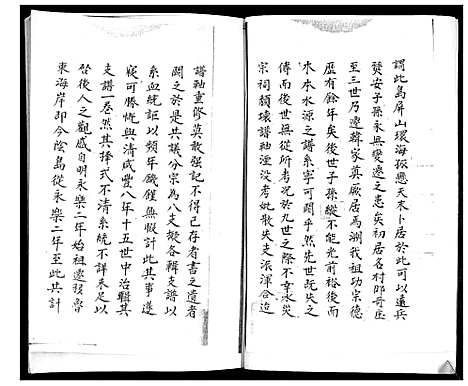 謂此島屏山環海孤懸天末卜居於此可以遠兵
燹安子孫永無變遷之患矣初居各村即奇庄
至三世乃遷韓家莫厥居焉溯我祖功宗德
歷有餘年矣後世子孫縱不能光前裕後而
木本水源之譜系寧可闕乎然先世既失之
傳而後世無從所考況於九世之際不幸水災
宗祠頹壞譜紬湮沒考妣散失支派渾合迨
譜紬重修莫敢強記不得已存者書之遺者
闕之於是共議分宗為八支散各輯支譜以
系血統詎以頻年饑饉無暇計此其事遂
寢可勝慨與清咸豐八年十五世中治輯其
支譜一卷然其擇式不清系統不詳未足以
啓後人之觀感自明永樂二年始祖遷移
東海岸即今陰島從永樂二年至此共計